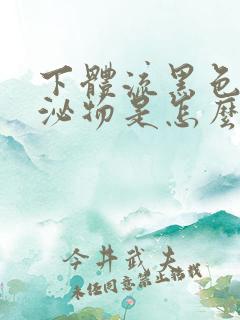 下體流黑色
泌物是怎麼
今井武夫
未經同意禁止轉載